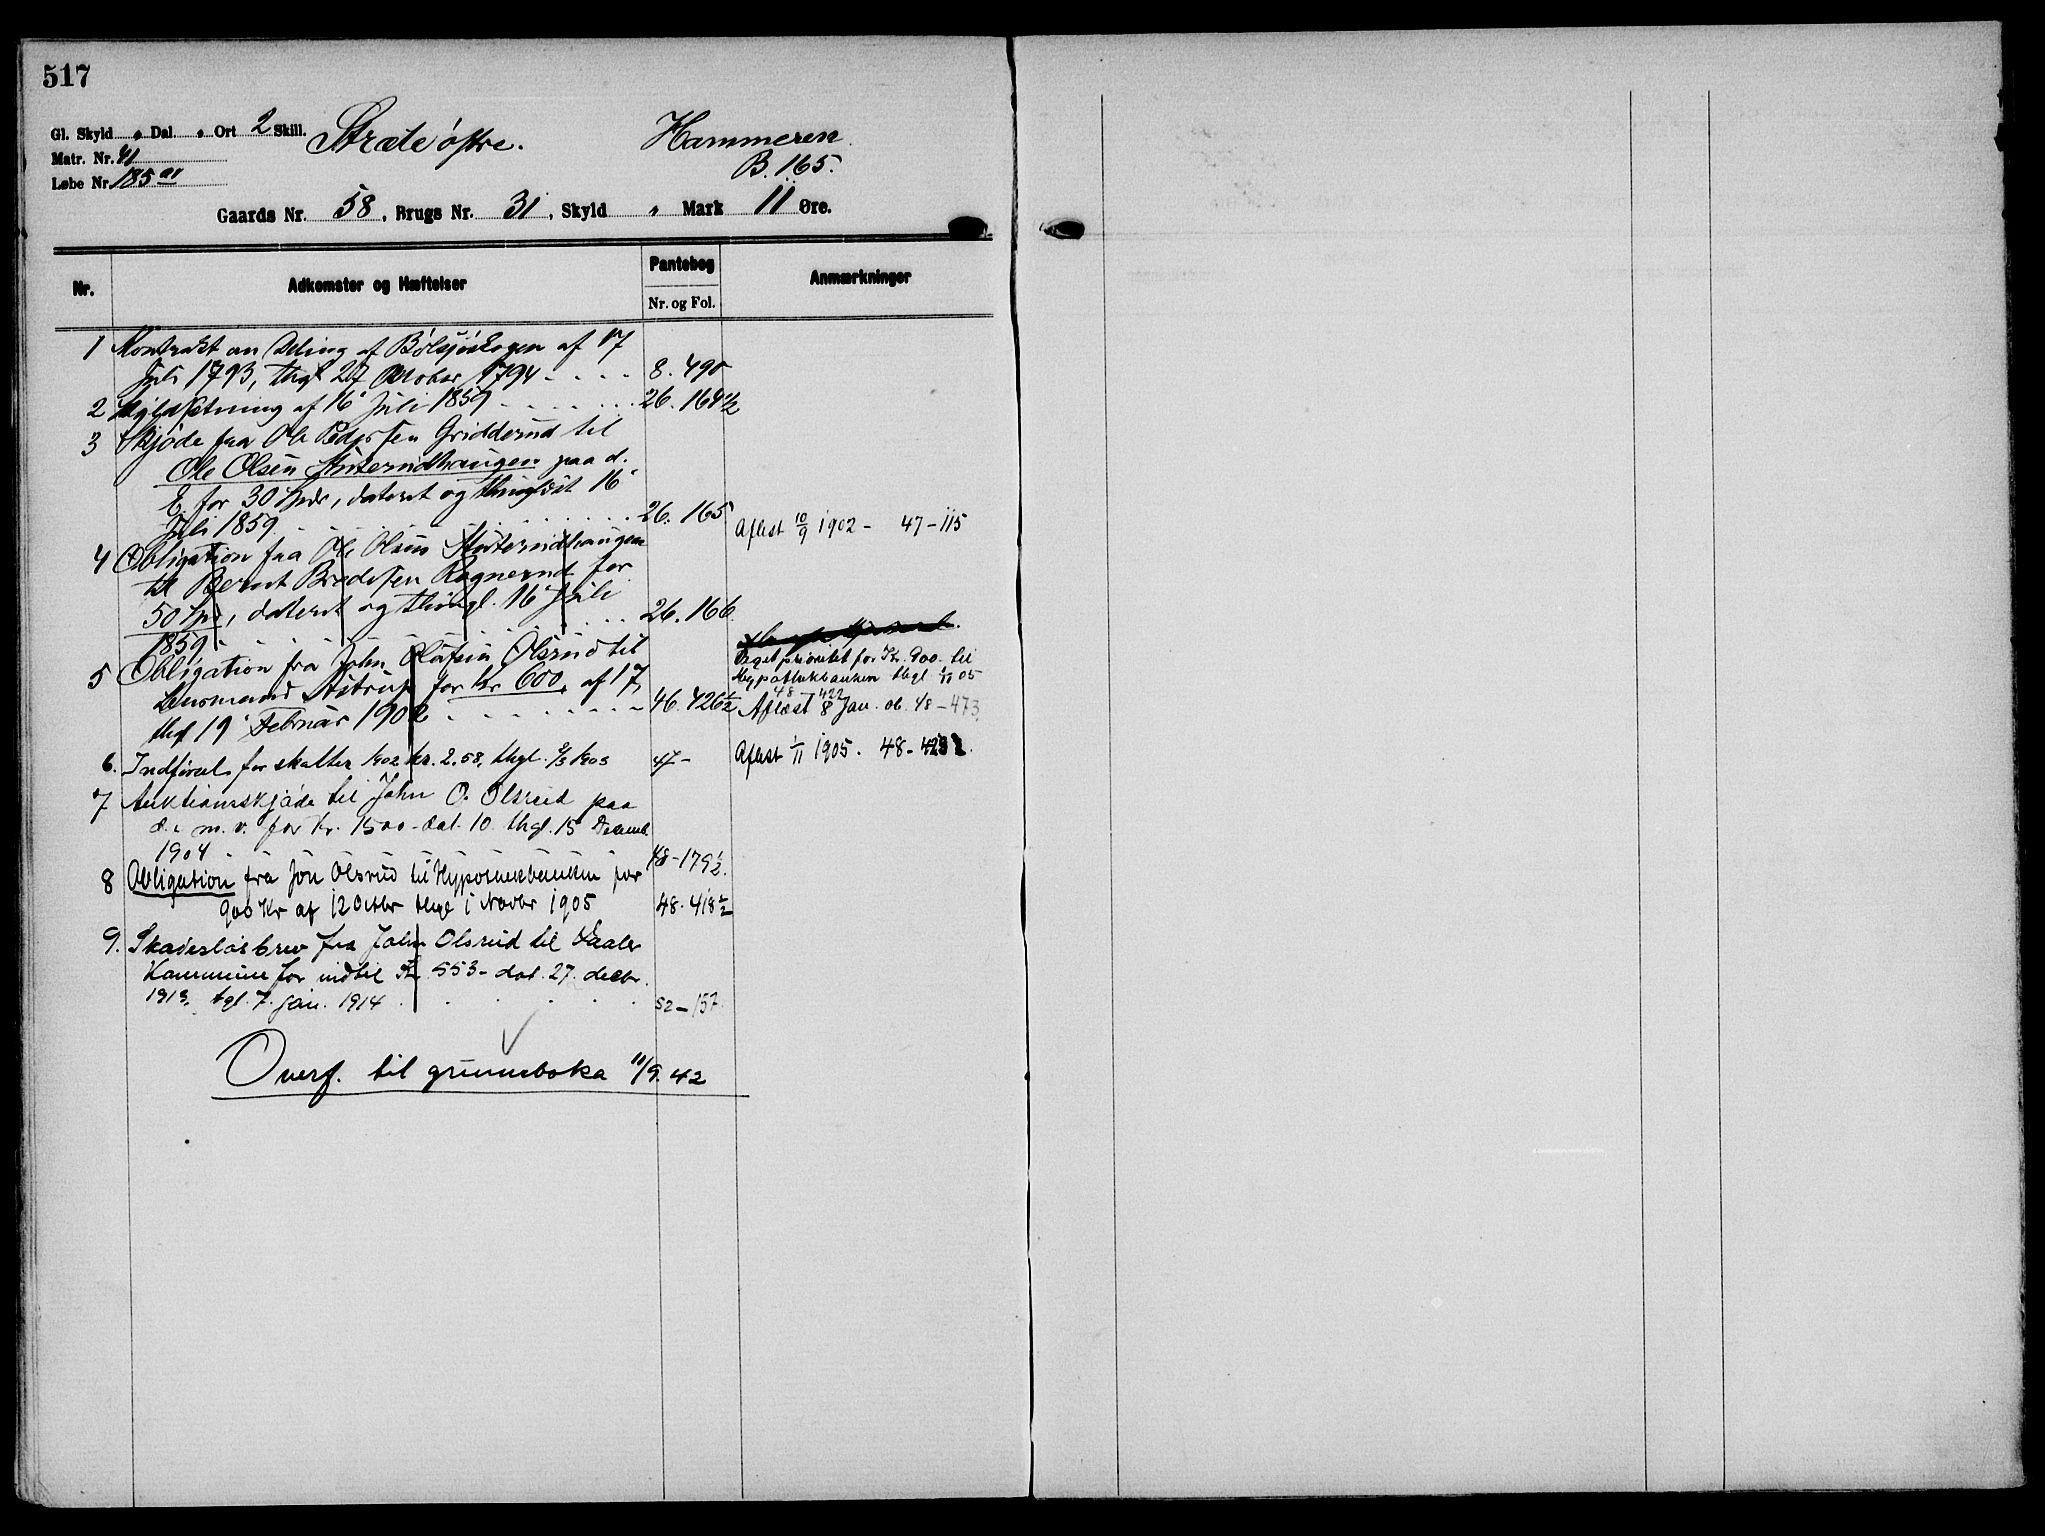 517
Gl. Skyld " Dal. " Ort 2 Skill. Stræte østre. Hammeren
Matr. Nr. 41 B. 165.
Løbe Nr. 185 ar
Gaards Nr. 58, Brugs Nr. 31, Skyld " Mark 11 Øre.
Nr. Adkomster og Hæftelser Pantebog Anmærkninger
Nr. og Fol.
1 Kontrakt om Deling af Bølsjøskogen af 17
Juli 1793, thgl 27 Oktober 1794 8. 490
2 Skyldsetning af 16 Juli 1859 26. 164 1/2
3 Skjøde fra Ole Pedersen Gridderud til
Ole Olsen paa d.
E. for 30 Spdr, dateret og thinglæst 16
Juli 1859 26. 165 Aflest 10/9 1902 - 47-115
4 Obligation fra Ole Olsen
til Bernt Bredesen Ragnerud for
50 Spd, dateret og thingl. 16 Juli
1859 26. 166
5 Obligation fra John Olafsen Olsrud til Veget prioritet for Kr. 900 til
Lensmand Astrup for Kr 600, af 17, Hypothekbanken thgl 1/11 05
48-422
thgl 19 Februar 1902 46. 426 1/2 Aflæst 8 Jan. 06. 48-473
6. Indførsel for skatter 1902 kr. 2.58, thgl. 1903 47- Aflest 1/11 1905. 48-
7 Auktionsskjøde til John O. Olsrud paa
d. m. v. for Kr. 1500 - dat. 10. thgl. 15 Decemb.
1904. 48-179 1/2.
8 Obligation fra Jon Olsrud til Hypothekbanken for
900 Kr af 12 Octbr thgl 1 Novbr 1905 48. 418 1/2
9. Skadesløsbrev fra John Olsrud til Vaaler
Kommune for indtil Kr 553 - dat. 27. decbr.
1913, tgl. 7. jan. 1914 52-157.
Overf. til grunnboka 11/9. 42